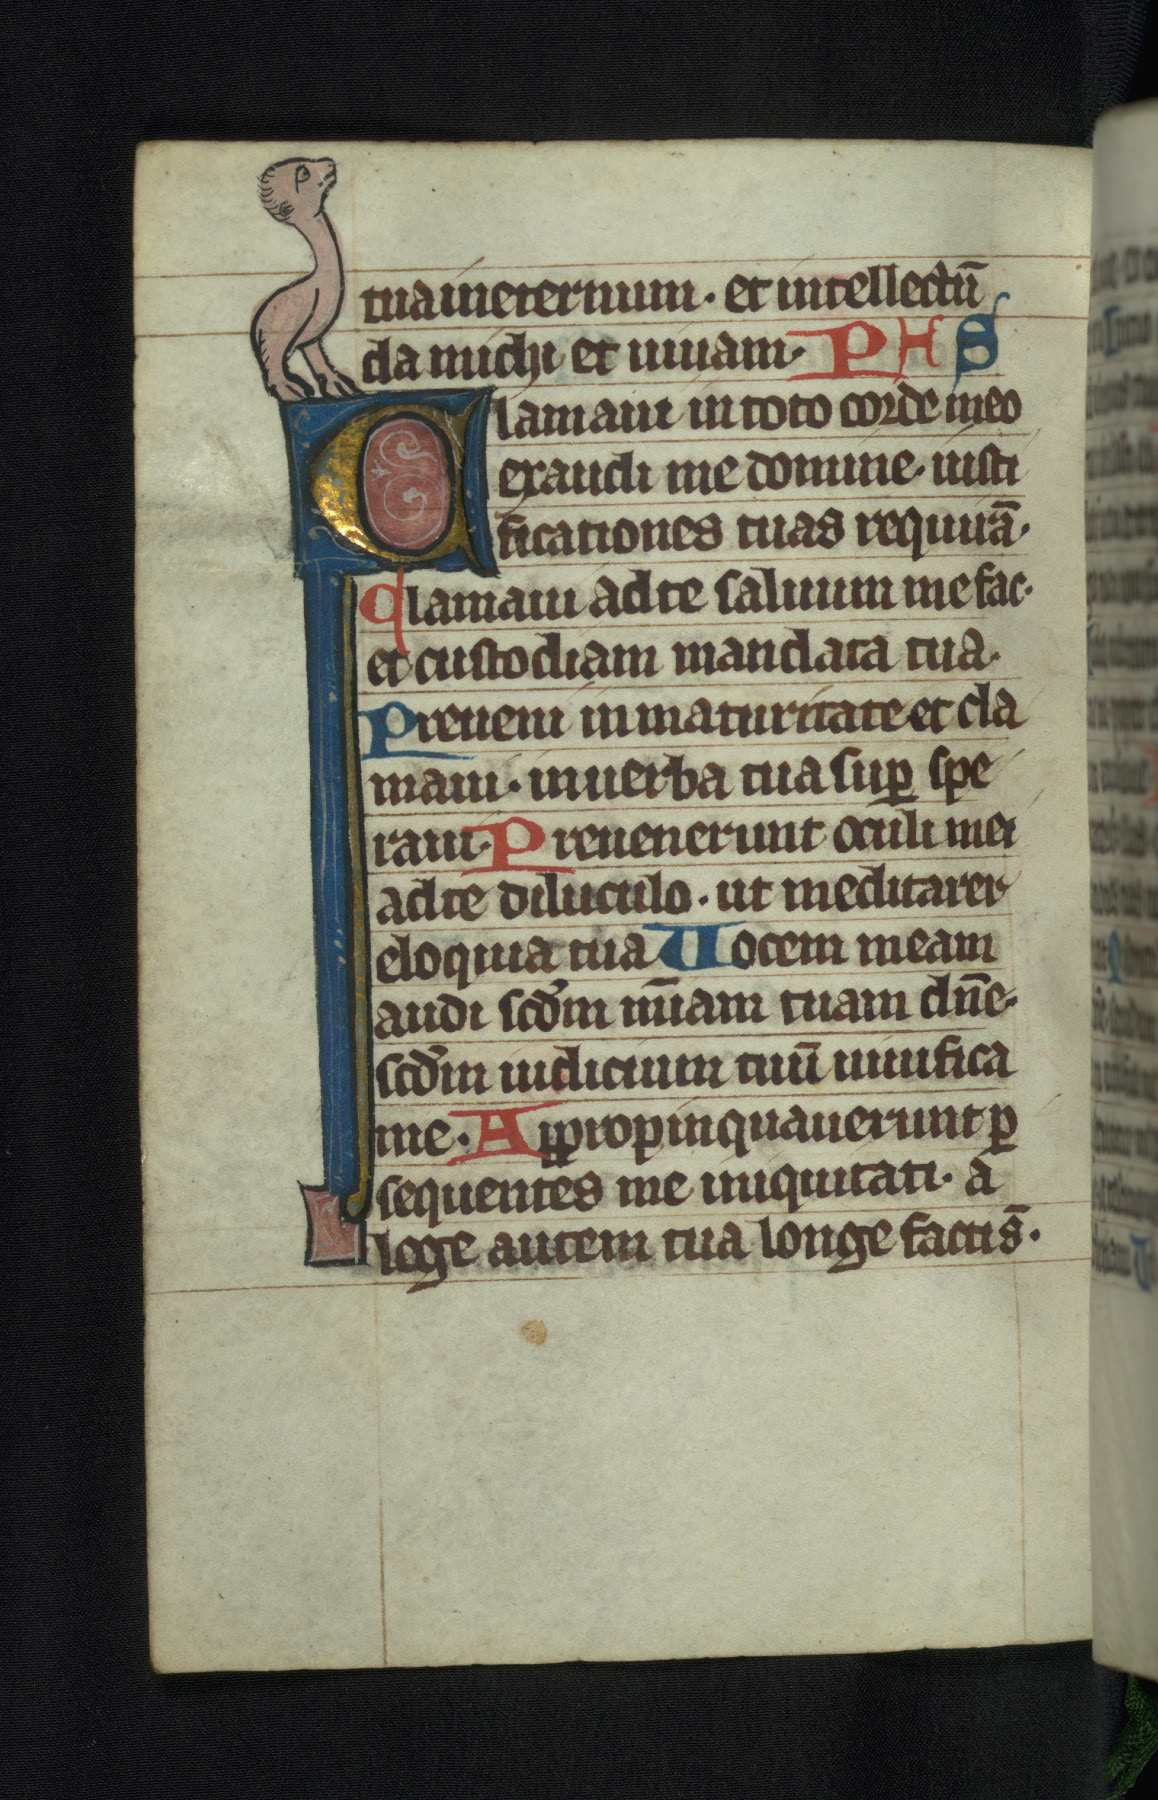 tua ineternum · et intellectū
da michi et uiuam · PHS
Clamaui in toto corde meo
exaudi me domine · iusti
ficationes tuas requirā ·
Clamaui ad te saluum me fac ·
et custodiam mandata tua ·
Preueni in maturitate et cla
maui · in uerba tua suꝑ spe
raui · Preuenerunt oculi mei
ad te diluculo · ut meditarer
eloquia tua Uocem meam
audi scd̄m mīam tuam dn̄e ·
scd̄m iudicium tuū uiuifica
me · Aꝓpropinquauerunt ꝑ
sequentes me iniquitati · a
lege autem tua longe facti s̄ ·